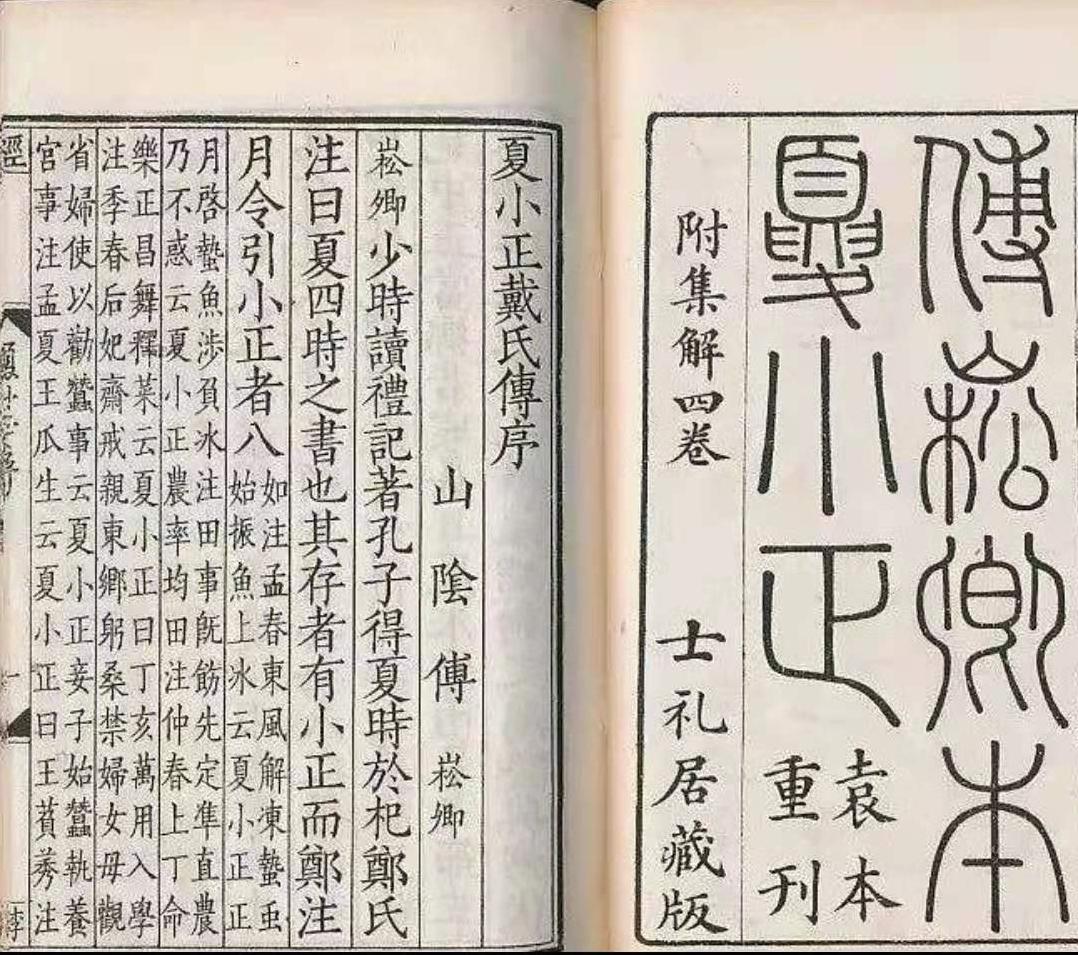 傅崧卿本
夏小正
袁本
重刊
附集解四卷
士礼居藏版
夏小正戴氏傳序
山陰傅崧卿
崧卿少時讀禮記著孔子得夏時於杞鄭氏
注曰夏四時之書也其存者有小正而鄭注
月令引小正者八
如注孟春東風解凍蟄虫
始振魚上冰云夏小正正
月啓蟄魚涉負冰注田事旣飭先定準直農
乃不惑云夏小正農率均田注仲春上丁命
樂正昌舞釋菜云夏小正曰丁亥萬用入學
注季春后妃齋戒親東鄉躬桑禁婦女毋觀
省婦使以勸蠶事云夏小正妾子始蠶執養
宮事注孟夏王瓜生云夏小正曰王萯莠注